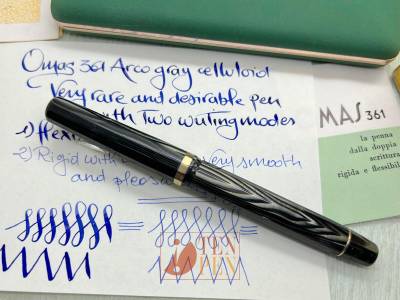 Omas 361 Arco gray celluloid
Very rare and desirable pen
with two writing modes
1) flexi
2) Rigid with very smooth
and pleas
MAS 361
la penna
dalla doppia
scrittura
rigida e flessibile
TEN
PEN